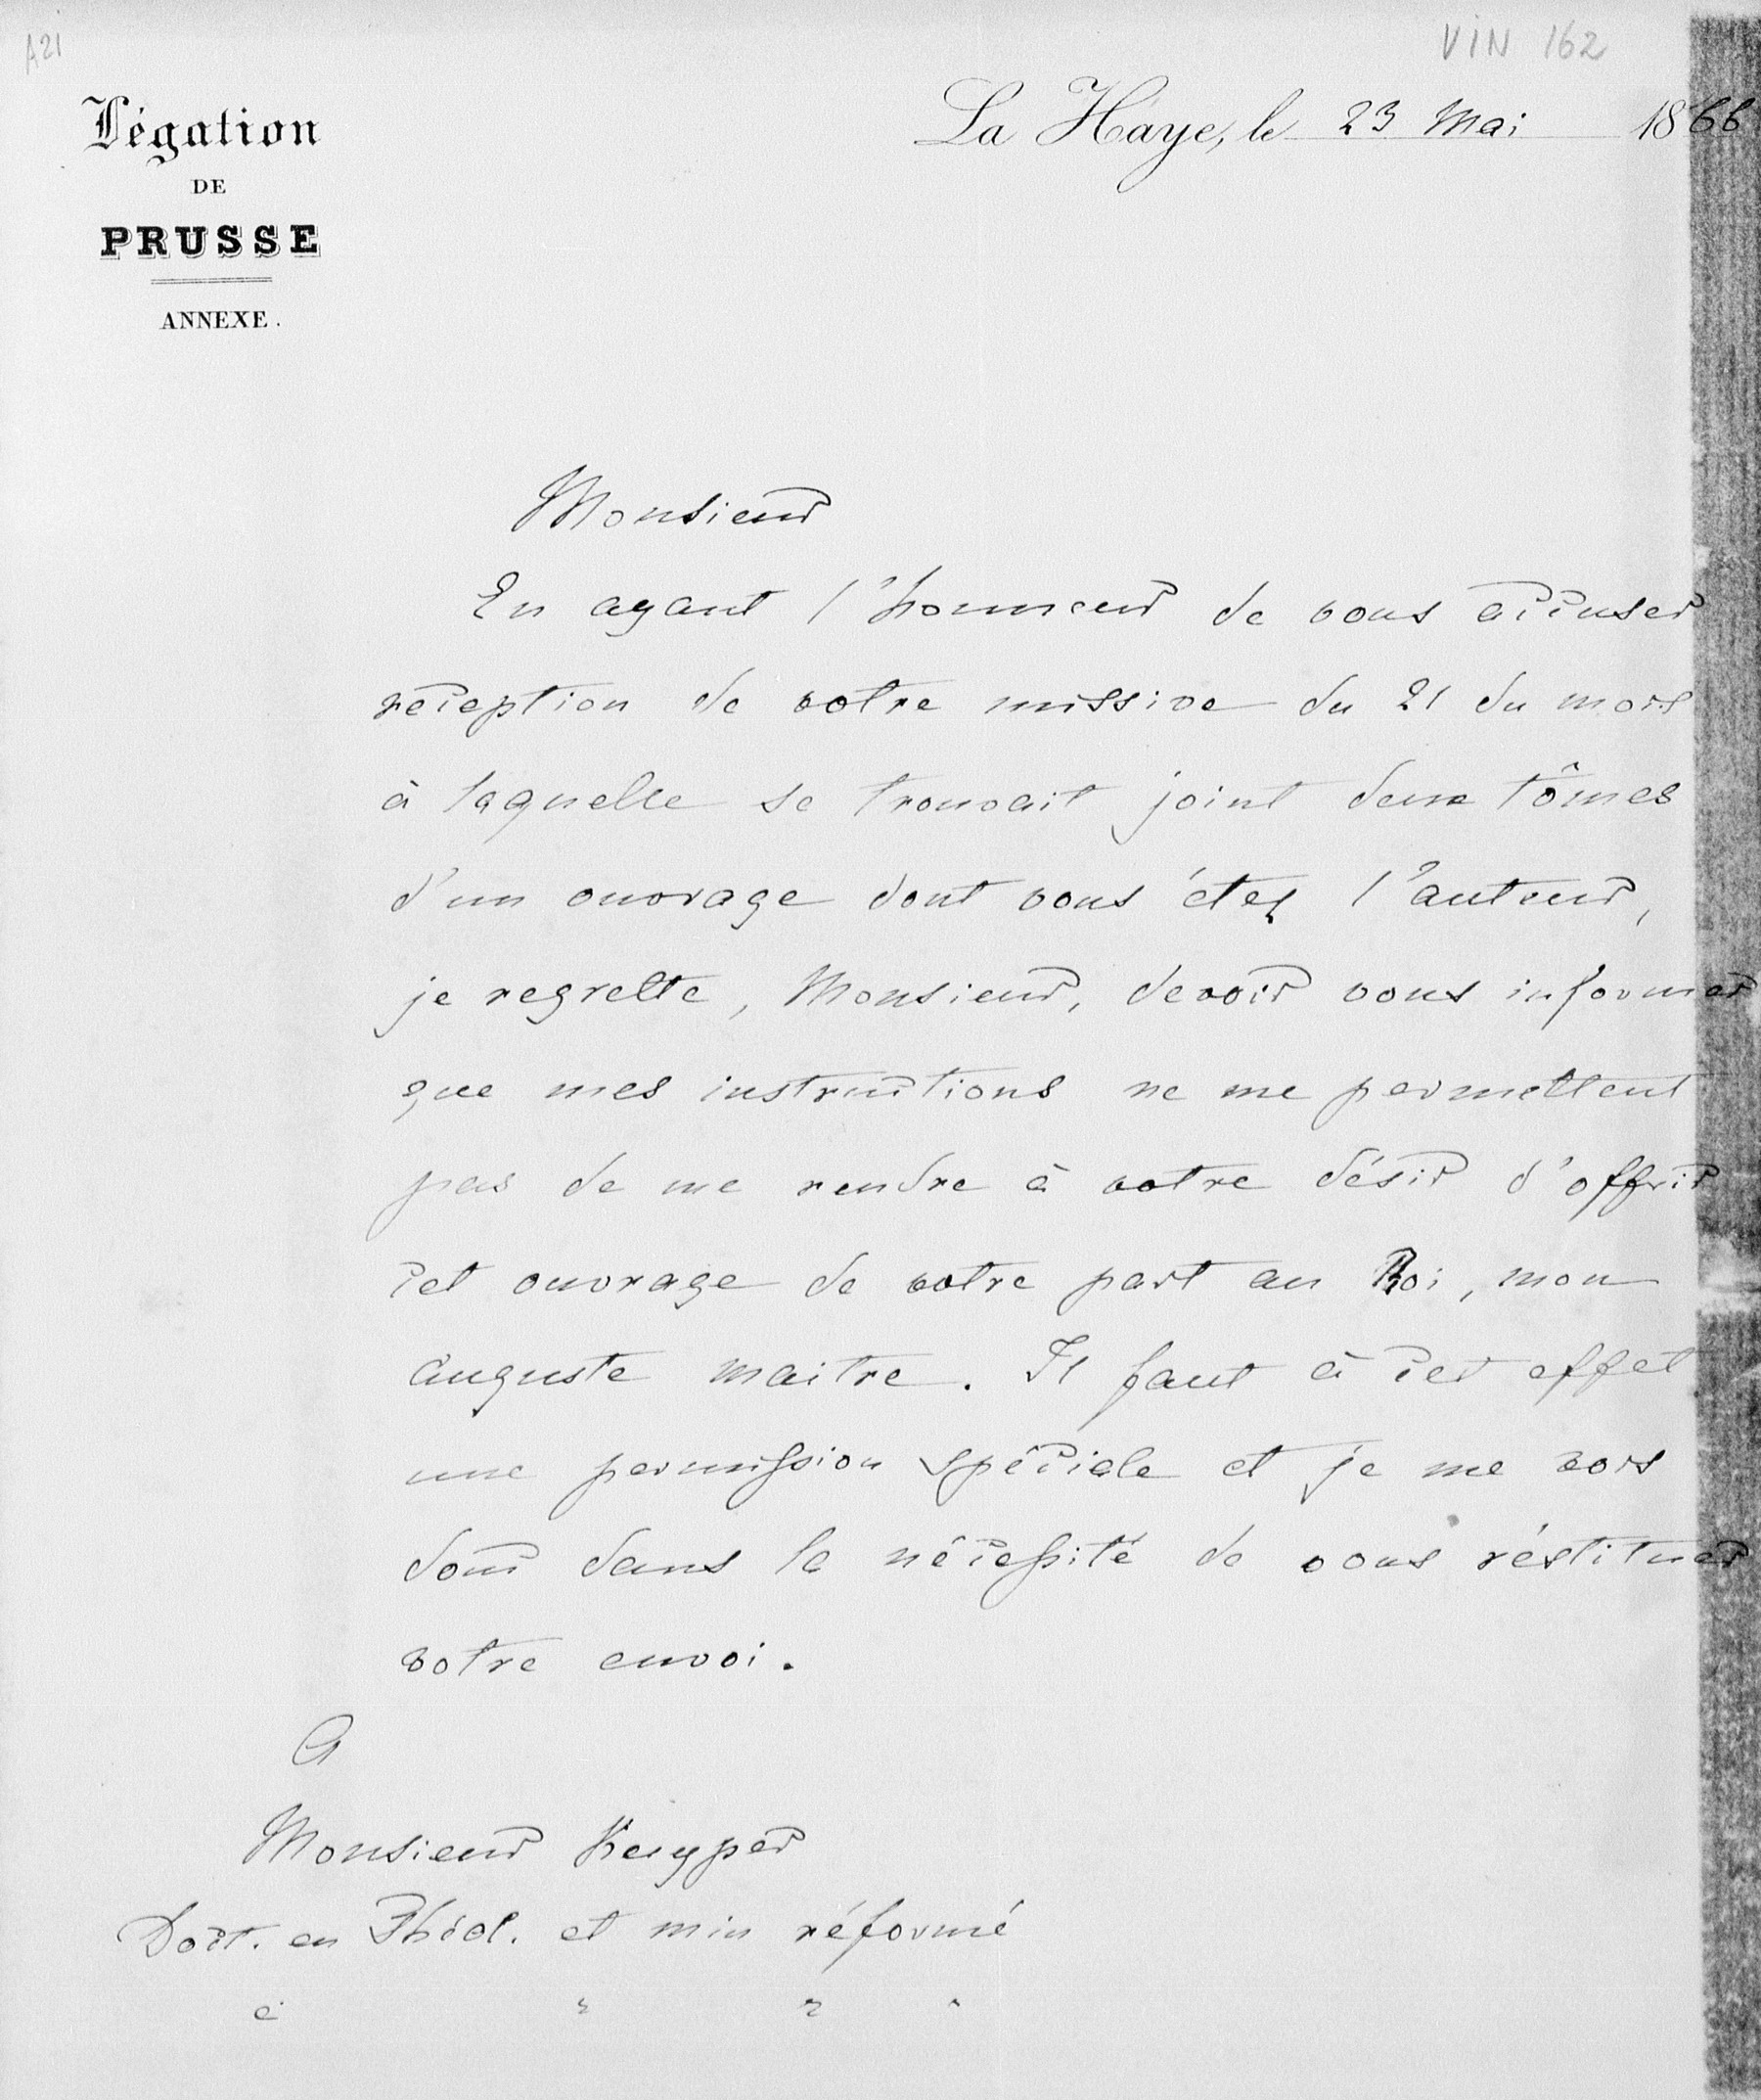 A21
VIN 162
Légation
DE
PRUSSE
ANNEXE.
La Haye, le 23 Mai 1866
Monsieur
En ayant l'honneur de vous accuser
réception de votre missive du 21 du mois
à laquelle se trouvait joint deux tômes
d'un ouvrage dont vous étes l'auteur,
je regrette, Monsieur, devoir vous informer
que mes instructions ne me permettent
pas de me rendre à votre désir d'offrir
cet ouvrage de votre part au Roi, mon
auguste maitre. Il faut à cet effet
une permission spéciale et je me vois
donc dans la nécessité de vous réstituer
votre envoi.
A
Monsieur Kuyper
Doct. en Théol. et min réformé
à " " "